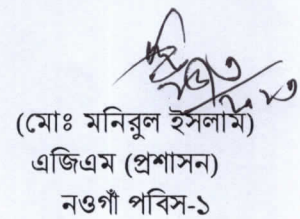 (মোঃ মনিরুল ইসলাম)
এজিএম (প্রশাসন)
নওগাঁ পবিস-১